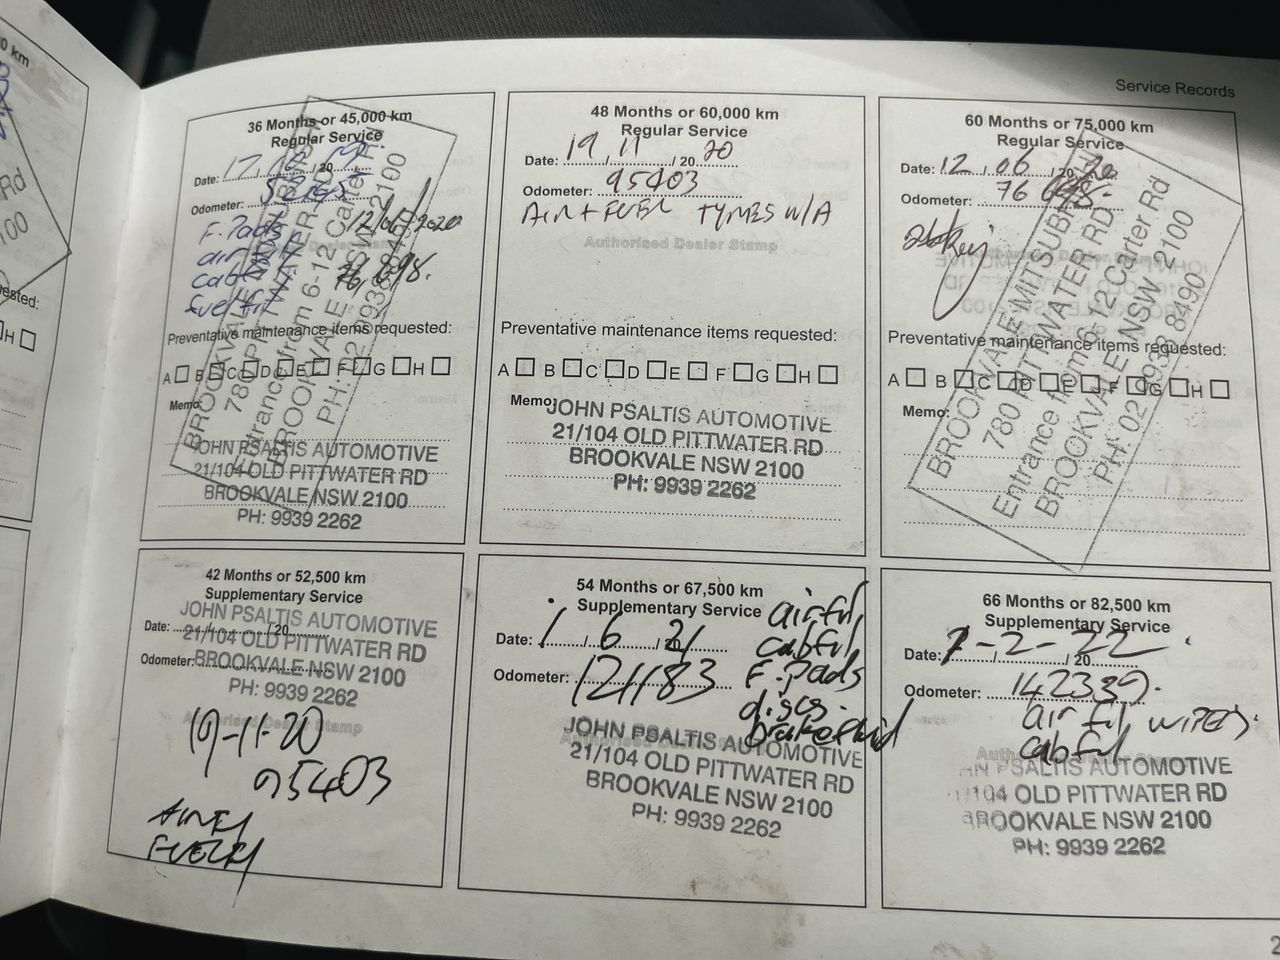 Service Records
36 Months or 45,000 km
Regular Service
Date: 17 / / 20
Odometer:
F. Pads 12/06/2020
air
cab 76,698.
fuel fil
Preventative maintenance items requested:
A B C D E F G H
Memo:
BROOKVALE MITSUBISHI
780 PITTWATER RD
Entrance from 6-12 Carter Rd
BROOKVALE NSW 2100
PH: 02 9938 8490
JOHN PSALTIS AUTOMOTIVE
21/104 OLD PITTWATER RD
BROOKVALE NSW 2100
PH: 9939 2262
48 Months or 60,000 km
Regular Service
Date: 19 / 11 / 20 20
Odometer: 95403
AIR + FUEL TYRES W/A
Authorised Dealer Stamp
Preventative maintenance items requested:
A B C D E F G H
Memo:
JOHN PSALTIS AUTOMOTIVE
21/104 OLD PITTWATER RD
BROOKVALE NSW 2100
PH: 9939 2262
60 Months or 75,000 km
Regular Service
Date: 12 / 06 / 20 20
Odometer: 76 698.
Preventative maintenance items requested:
A B C D E F G H
Memo:
BROOKVALE MITSUBISHI
780 PITTWATER RD
Entrance from 6-12 Carter Rd
BROOKVALE NSW 2100
PH: 02 9938 8490
42 Months or 52,500 km
Supplementary Service
JOHN PSALTIS AUTOMOTIVE
Date: / / 20
21/104 OLD PITTWATER RD
Odometer:
BROOKVALE NSW 2100
PH: 9939 2262
Authorised Dealer Stamp
19-11-20
95403
AIRFIL
FUELFIL
54 Months or 67,500 km
Supplementary Service
Date: 1 / 6 / 20 21
Odometer: 121183
air fil,
cab fil,
F. Pads
discs.
brake fluid
JOHN PSALTIS AUTOMOTIVE
21/104 OLD PITTWATER RD
BROOKVALE NSW 2100
PH: 9939 2262
66 Months or 82,500 km
Supplementary Service
Date: 1-2-22 / 20
Odometer: 142339.
air fil, WIPERS.
cab fil,
JOHN PSALTIS AUTOMOTIVE
21/104 OLD PITTWATER RD
BROOKVALE NSW 2100
PH: 9939 2262